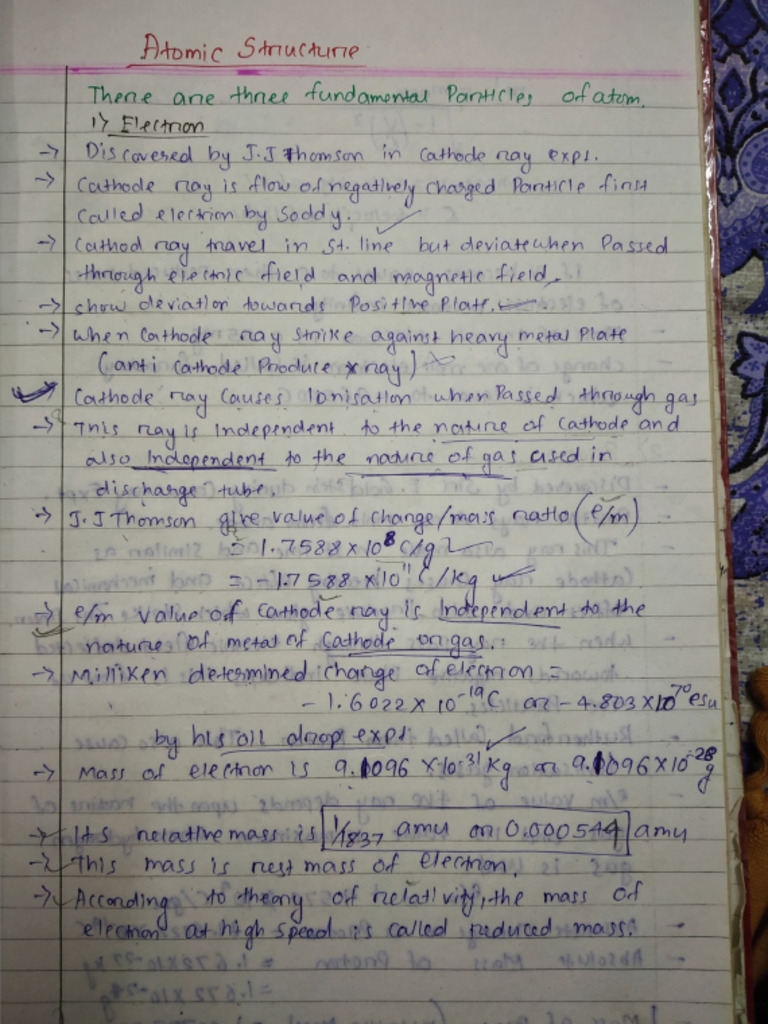 Atomic Structure
There are three fundamental Particles of atom.
1) Electron
→ Discovered by J.J Thomson in Cathode ray expt.
→ Cathode ray is flow of negatively charged Particle first
called electron by Soddy.
→ Cathod ray travel in St. line but deviate when Passed
through electric field and magnetic field.
→ show deviation towards Positive Plate.
→ when Cathode ray strike against heavy metal Plate
(anti Cathode Produce x ray)
Cathode ray Causes Ionisation when Passed through gas
→ This ray is Independent to the nature of Cathode and
also Independent to the nature of gas used in
discharge tube.
→ J.J Thomson give value of charge/mass ratio (e/m)
= 1.7588 × 10⁸ C/g
= -1.7588 × 10¹¹ C/kg
→ e/m value of Cathode ray is Independent to the
nature of metal of Cathode or gas.
→ Milliken determined charge of electron =
- 1.6022 × 10⁻¹⁹ C or - 4.803 × 10⁻¹⁰ esu
by his oil drop expt
→ Mass of electron is 9.1096 × 10⁻³¹ Kg or 9.1096 × 10⁻²⁸ g
→ Its relative mass is 1/1837 amu or 0.000544 amu
→ This mass is rest mass of electron.
→ According to theory of relativity, the mass of
electron at high speed is called reduced mass.